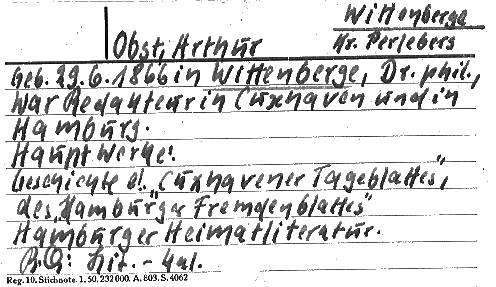 Wittenberge
Kr. Perleberg
Obst, Arthur
Geb. 29.6.1866 in Wittenberge, Dr. phil.,
war Redakteur in Cuxhaven und in
Hamburg.
Hauptwerke:
Geschichte d. „Cuxhavener Tageblattes",
des „Hamburger Fremdenblattes"
Hamburger Heimatliteratur.
B.Q: Lit. - Kal.
Reg. 10. Stichnote. 1. 50. 232000. A. 803. S. 4062